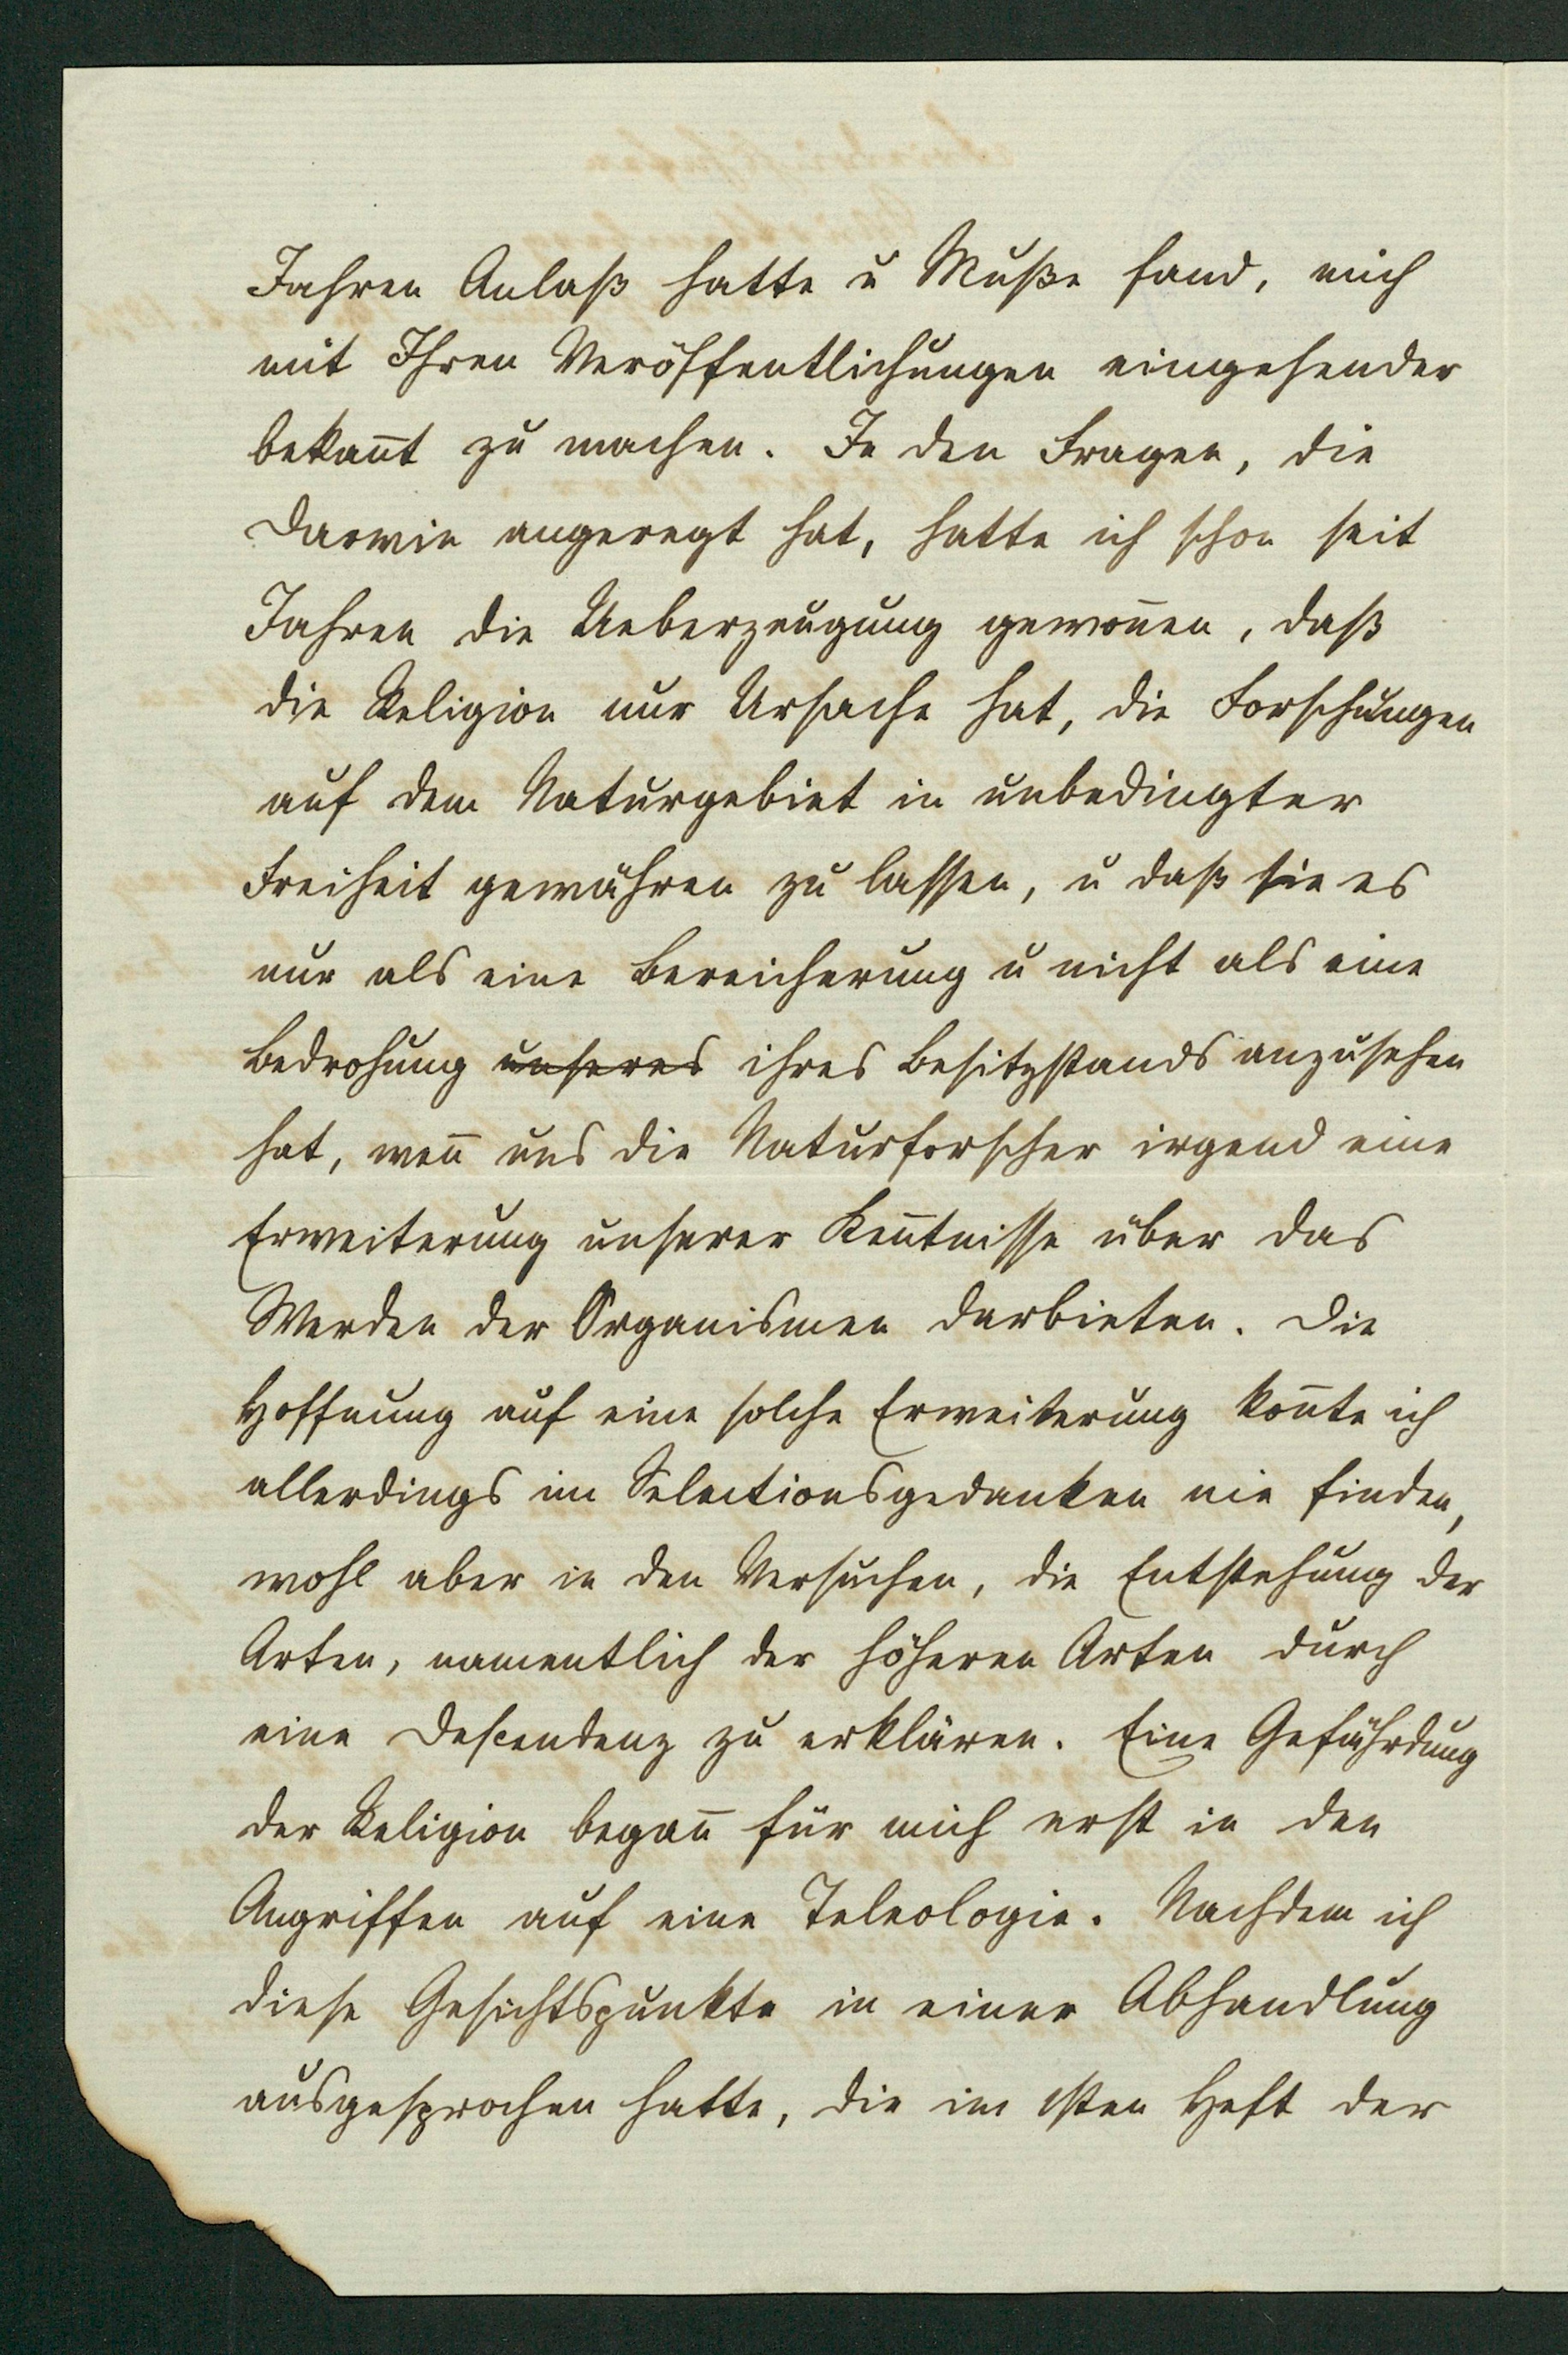 Jahren Anlaß hatte u Muße fand, mich
mit Ihren Veröffentlichungen eingehender
bekan̅t zu machen. In den Fragen, die
Darwin angeregt hat, hatte ich schon seit
Jahren die Ueberzeugung gewon̅en, daß
die Religion nur Ursache hat, die Forschungen
auf dem Naturgebiet in unbedingter
Freiheit gewähren zu lassen, u daß sie es
nur als eine Bereicherung u nicht als eine
Bedrohung unseres ihres Besitzstands anzusehen
hat, wen̅ uns die Naturforscher irgend eine
Erweiterung unserer Ken̅tnisse über das
Werden der Organismen darbieten. Die
Hoffnung auf eine solche Erweiterung kon̅te ich
allerdings im Selectionsgedanken nie finden,
wohl aber in den Versuchen, die Entstehung der
Arten, namentlich der höheren Arten durch
eine Descendenz zu erklären. Eine Gefährdung
der Religion began̅ für mich erst in den
Angriffen auf eine Teleologie. Nachdem ich
diese Gesichtspunkte in einer Abhandlung
ausgesprochen hatte, die im 1sten Heft der